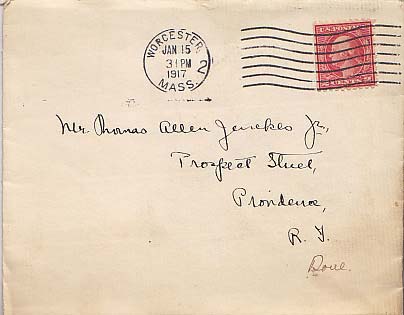 WORCESTER,
JAN 15
31PM
1917
MASS.
2
U.S. POSTAGE
CENTS
Mr. Thomas Allen Jenckes Jr.,
Prospect Street,
Providence,
R. I.
Done.